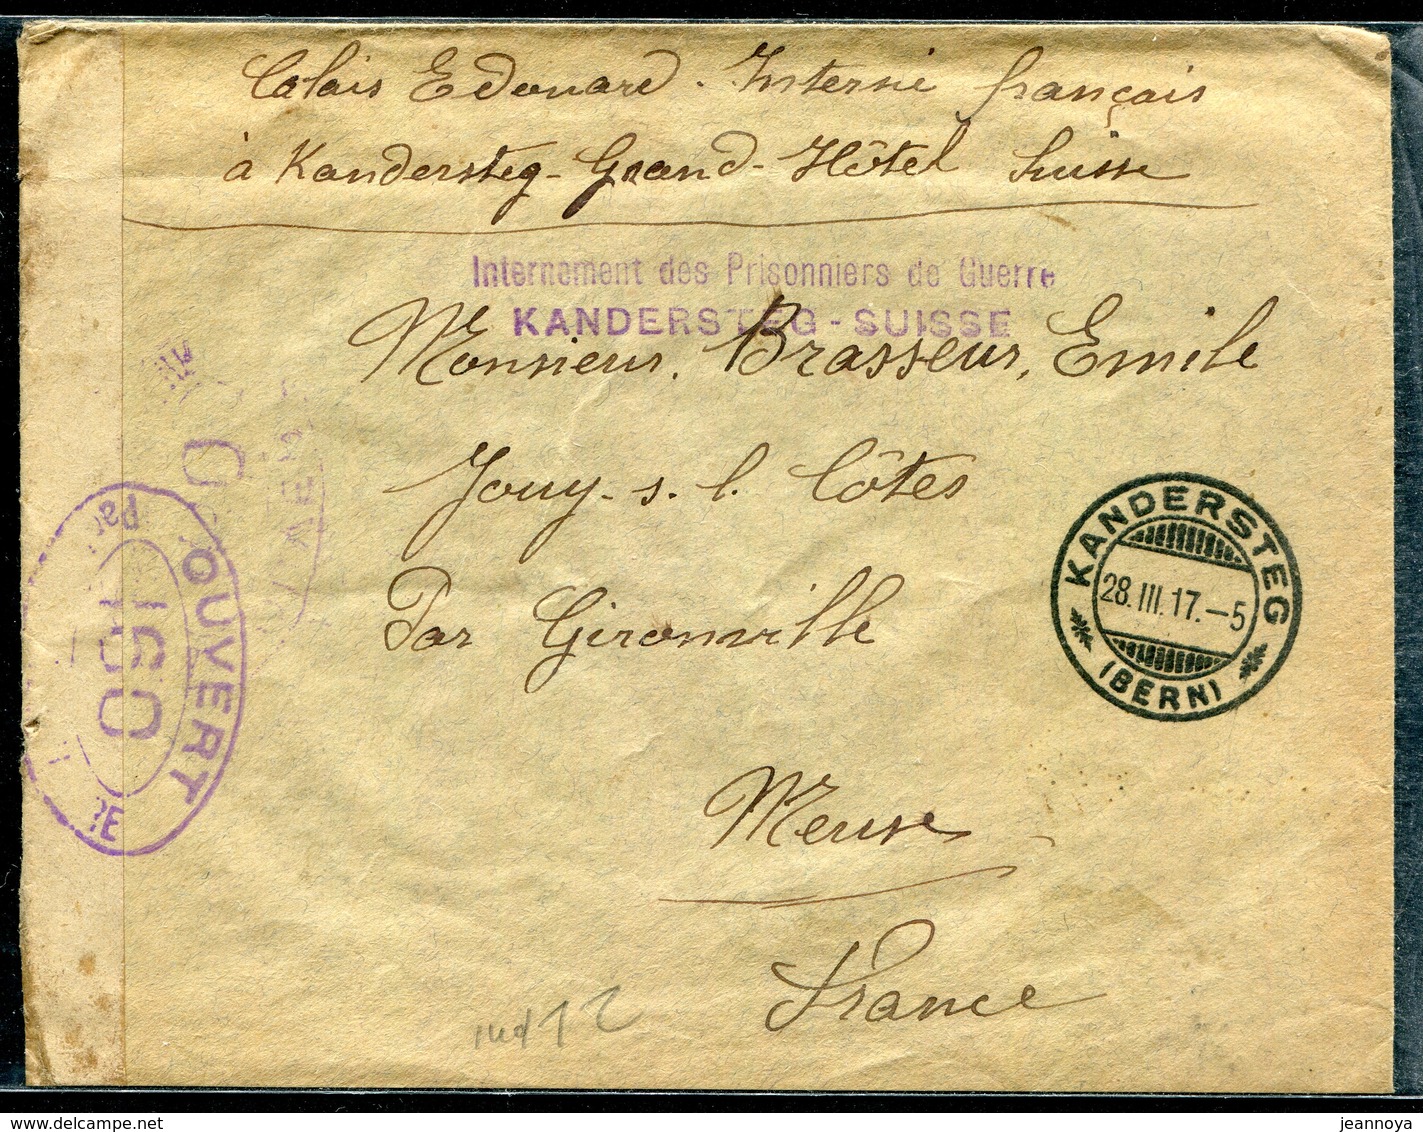 Calais Edouard. Interné français
à Kandersteg - Grand-Hôtel Suisse
Internement des Prisonniers de Guerre
KANDERSTEG - SUISSE
Monsieur. Brasseur, Emile
Jouy. s. l. Côtes
Par Gironville
Meuse
France
KANDERSTEG
28. III. 17. – 5
(BERN)
OUVERT
par
160
12
jeannoya